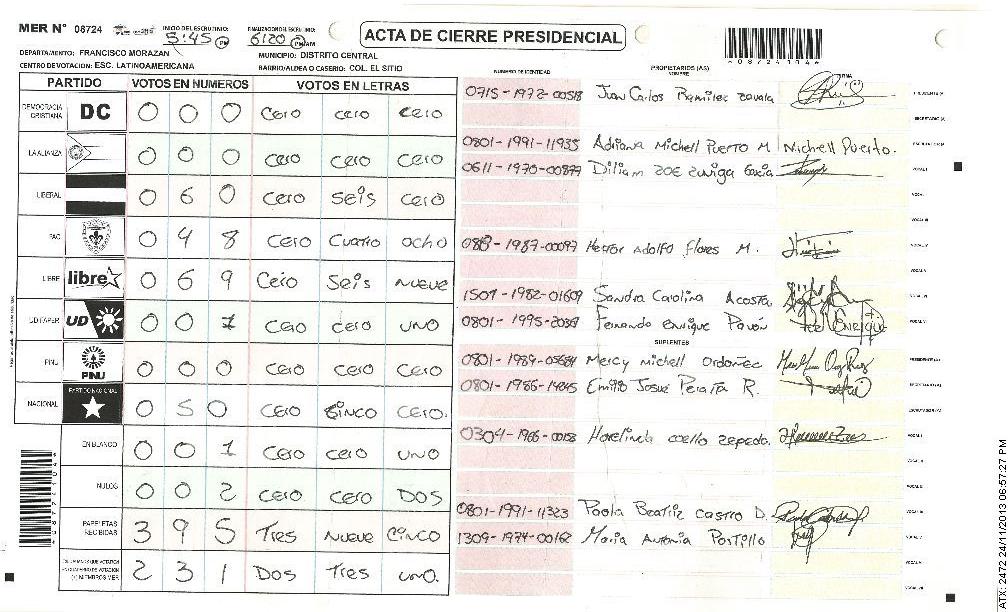 MER N° 08724
INICIO DEL ESCRUTINIO: 5:45 PM
FINALIZACION DEL ESCRUTINIO: 6:20 PM/AM
ACTA DE CIERRE PRESIDENCIAL
*08724104*
DEPARTAMENTO: FRANCISCO MORAZAN
MUNICIPIO: DISTRITO CENTRAL
CENTRO DE VOTACION: ESC. LATINOAMERICANA
BARRIO/ALDEA O CASERIO: COL. EL SITIO
PARTIDO VOTOS EN NUMEROS VOTOS EN LETRAS
DEMOCRACIA CRISTIANA DC 0 0 0 Cero cero cero
LA ALIANZA 0 0 0 cero cero cero
LIBERAL 0 6 0 Cero seis cero
PAC 0 4 8 Cero Cuatro ocho
LIBRE libre 0 6 9 Cero Seis nueve
UD FAPER UD 0 0 1 Cero cero uno
PINU PINU 0 0 0 cero cero cero
NACIONAL PARTIDO NACIONAL 0 5 0 cero cinco cero.
EN BLANCO 0 0 1 cero cero uno
NULOS 0 0 2 cero cero Dos
PAPELETAS RECIBIDAS 3 9 5 Tres nueve cinco
(+) MIEMBROS MER 2 3 1 Dos Tres uno.
NUMERO DE IDENTIDAD PROPIETARIOS (AS) NOMBRE FIRMA
0715-1972-00518 Juan Carlos Ramirez zavala PRESIDENTE (A)
SECRETARIO (A)
0801-1991-11935 Adriana Michell Puerto M Michell Puerto. ESCRUTADOR (A)
0611-1970-00877 Diliam ZOE zuniga Garcia VOCAL I
VOCAL II
VOCAL III
Hector Adolfo flores M. VOCAL IV
VOCAL V
1501-1982-01609 Sandra Carolina Acosta VOCAL VI
Fernando Enrique Pavón ENRIQUE
SUPLENTES
Mercy Michell Ordoñez PRESIDENTE (A)
Emilio Josue Peralta R. SECRETARIO (A)
ESCRUTADOR (A)
coello zepeda. VOCAL I
VOCAL II
0801-1991-11323 Paola Beatriz Castro D.
1309-1974-00162 Maria Antonia Portillo
ATX: 2472 24/11/2013 06:57:27 PM